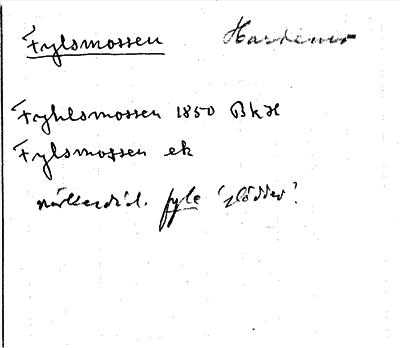 Fylsmossen Hardemo
Fyhlsmossen 1850 BkH
Fylsmossen ek
närkesdial. fyle 'slödder'.